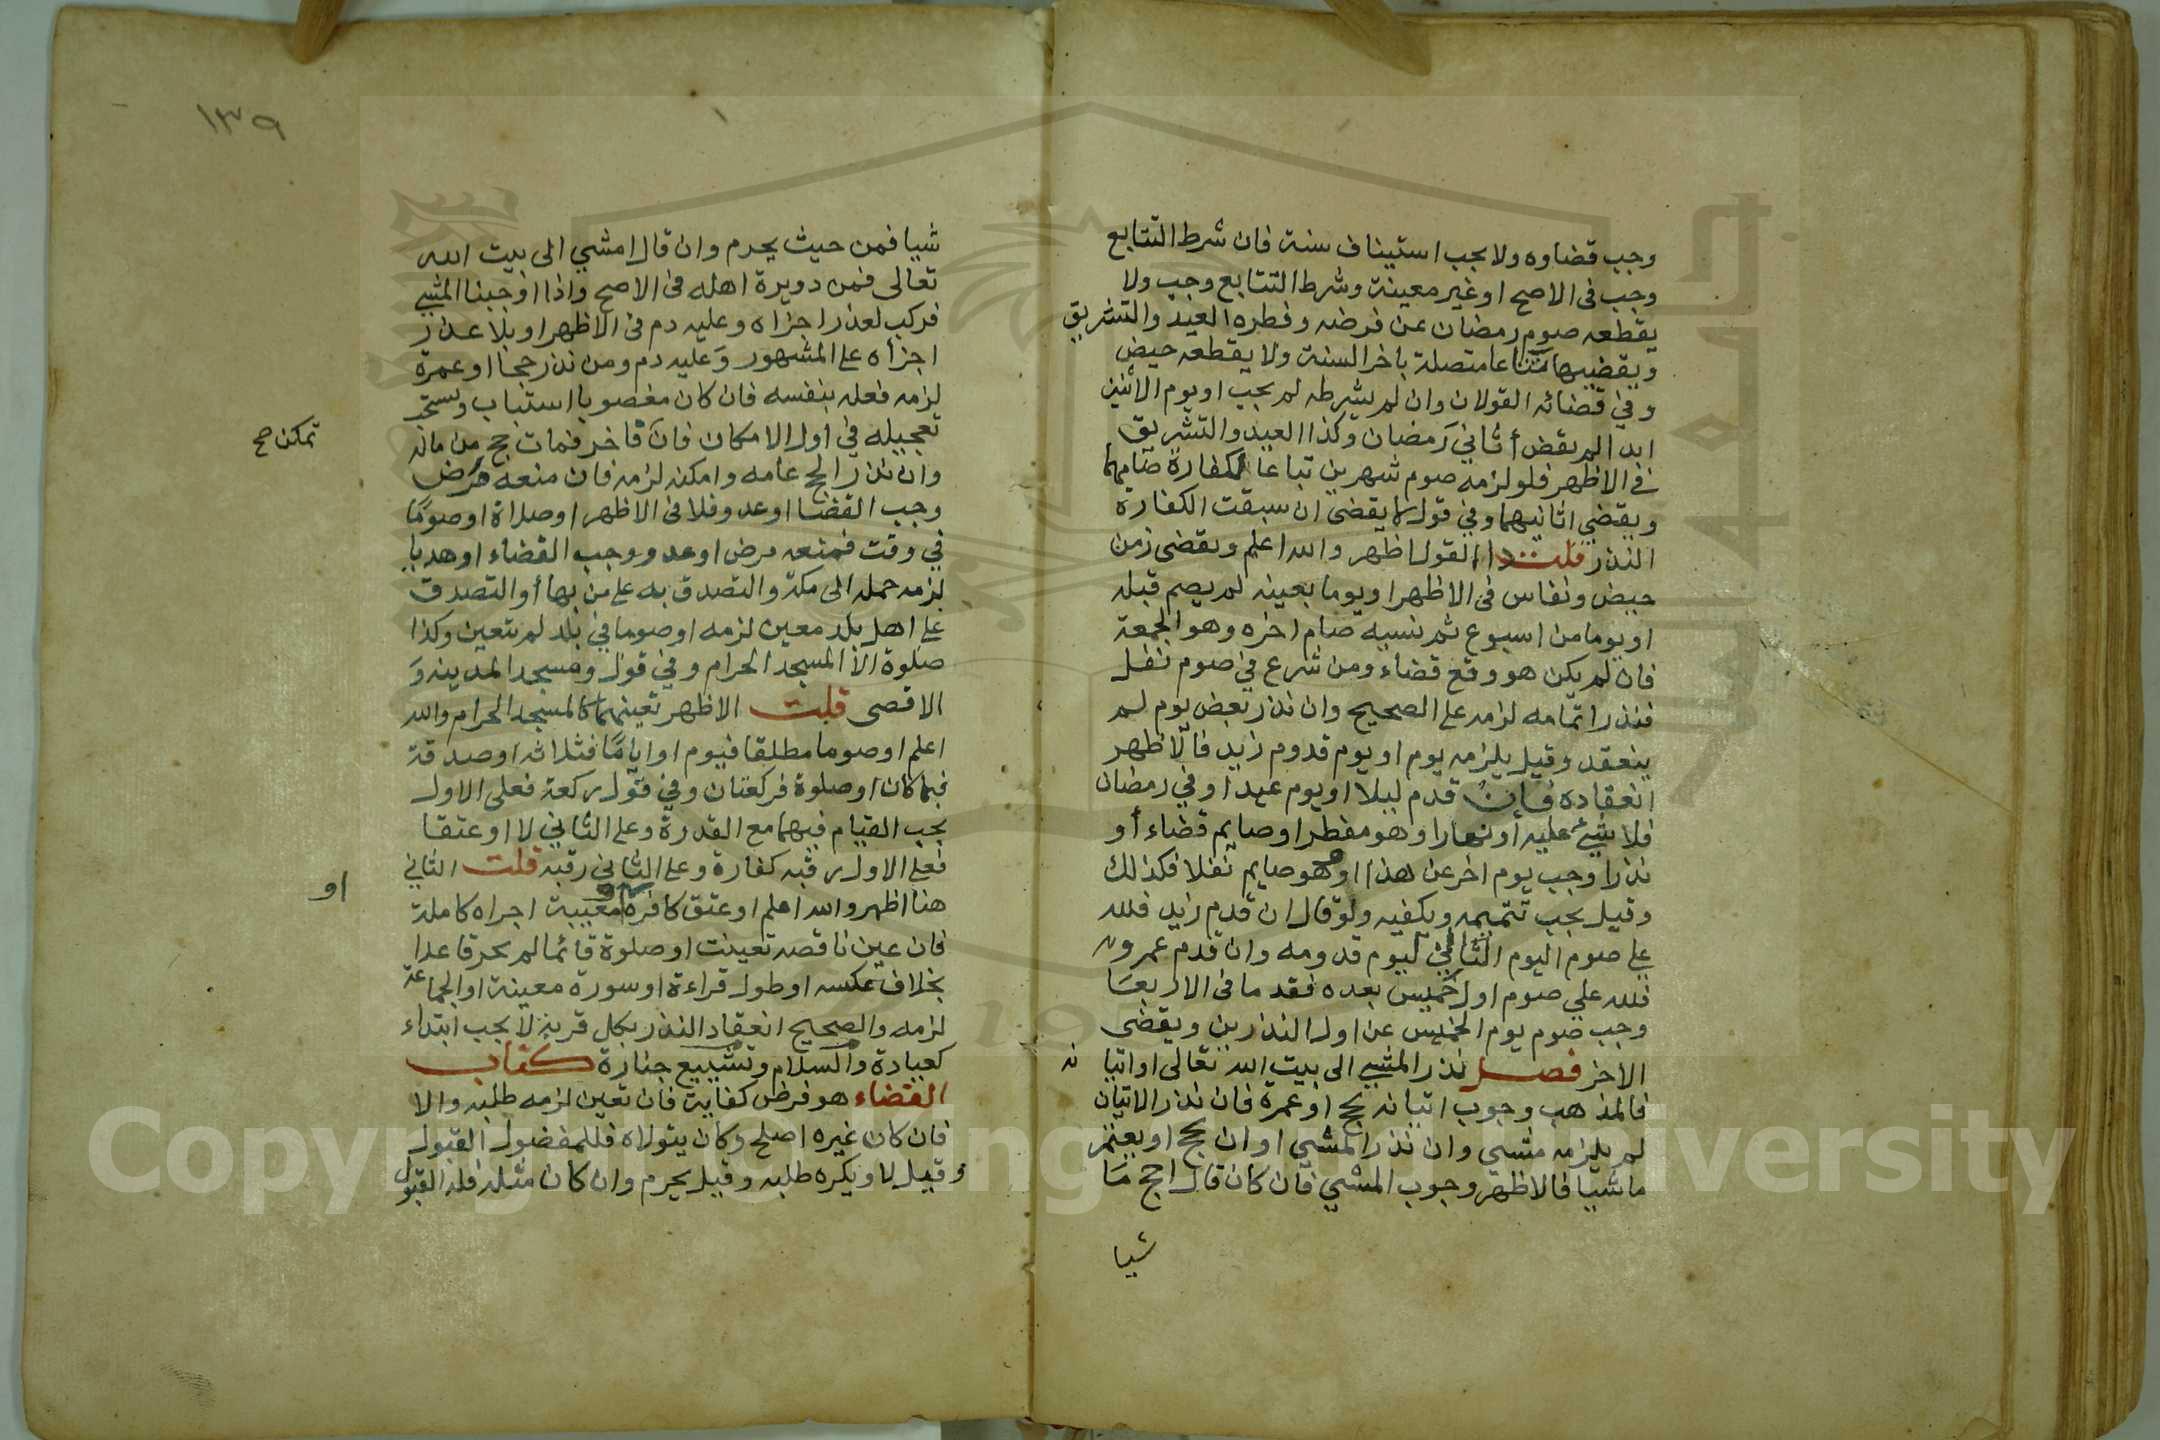 وجب قضاوه ولا يجب استيناف سنة فان شرط التتابع
وجب في الاصح او غير معينة وشرط التتابع وجب ولا
يقطعه صوم رمضان عن فرضه وفطره العيد والتشريق
ويقضيها تتاعا متصلة باخر السنة ولا يقطعه حيض
وفي قضائه القولان وان لم يشرطه لم يجب او يوم الاثنين
ابدا لم يقض أثاني رمضان وكذا العيد والتشريق
في الاظهر فلو لزمه صوم شهرين تباعا لكفارة صامهما
ويقضي اثانيهما وفي قول لا يقضى ان سبقت الكفارة
النذر قلت ذا القول اظهر والله اعلم ويقضى زمن
حيض ونفاس في الاظهر او يوما بعينه لم يصم قبله
او يوما من اسبوع ثم نسيه صام اخره وهو الجمعة
فان لم يكن هو وقع قضاء ومن شرع في صوم نفل
فنذر اتمامه لزمه على الصحيح وان نذر بعض يوم لم
ينعقد وقيل يلزمه يوم او يوم قدوم زيد فالاظهر
انعقاده فان قدم ليلا او يوم عيد او في رمضان
فلا شيء عليه أو نهارا وهو مفطر او صايم قضاء أو
نذرا وجب يوم اخر عن هذا او وهو صايم نفلا فكذلك
وقيل يجب تتميمه ويكفيه ولو قال ان قدم زيد فلله
علي صوم اليوم الثاني ليوم قدومه وان قدم عمرو
فلله علي صوم اول خميس بعده فقدما في الاربعا
وجب صوم يوم الخميس عن اول النذرين ويقضى
الاخر فصل نذر المشي الى بيت الله تعالى او اتيا نه
فالمذهب وجوب اتيانه بحج او عمرة فان نذر الاتيان
لم يلزمه مشي وان نذر المشي او ان يحج او يعتمر
ماشيا فالاظهر وجوب المشي فان كان قال احج ما
شيا
١٣٩
شيا فمن حيث يحرم وان قال امشي الى بيت الله
تعالى فمن دويرة اهله في الاصح واذا اوجبنا المشي
فركب لعذر اجزاه وعليه دم في الاظهر او بلا عذر
اجزأه على المشهور وعليه دم ومن نذر حجا او عمرة
لزمه فعله بنفسه فان كان مغصوبا استناب ويستحب
تعجيله في اول الامكان فان تاخر فمات حج من ماله
تمكن صح
وان نذر الحج عامه وامكنه لزمه فان منعه مرض
وجب القضا او عدو فلا في الاظهر او صلاة او صوما
في وقت فمنعه مرض او عدو وجب القضاء او هديا
لزمه حمله الى مكة والتصدق به على من بها أو التصدق
على اهل بلد معين لزمه او صوما في بلد لم يتعين وكذا
صلوة الا المسجد الحرام وفي قول ومسجد المدينة و
الاقصى قلت الاظهر تعينهما كالمسجد الحرام والله
اعلم او صوما مطلقا فيوم او اياما فثلاثه او صدقة
فبما كان او صلوة فركعتان وفي قول ركعة فعلى الاول
يجب القيام فيهما مع القدرة وعلى الثاني لا او عتقا
فعلى الاول رقبه كفارة وعلى الثاني رقبة قلت الثاني
او
هنا اظهر والله اعلم او عتق كافرة معيبة اجزاه كاملة
فان عين ناقصه تعينت او صلوة قائما لم يجز قاعدا
بخلاف عكسه او طول قراءة او سورة معينة او الجماعة
لزمه والصحيح انعقاد النذر بكل قربة لا يجب ابتداء
كعيادة والسلام وتشييع جنازة كتاب
القضاء هو فرض كفاية فان تعين لزمه طلبه والا
فان كان غيره اصلح وكان يتولاه فللمفضول القبول
وقيل لا ويكره طلبه وقيل يحرم وان كان مثله فله القبول